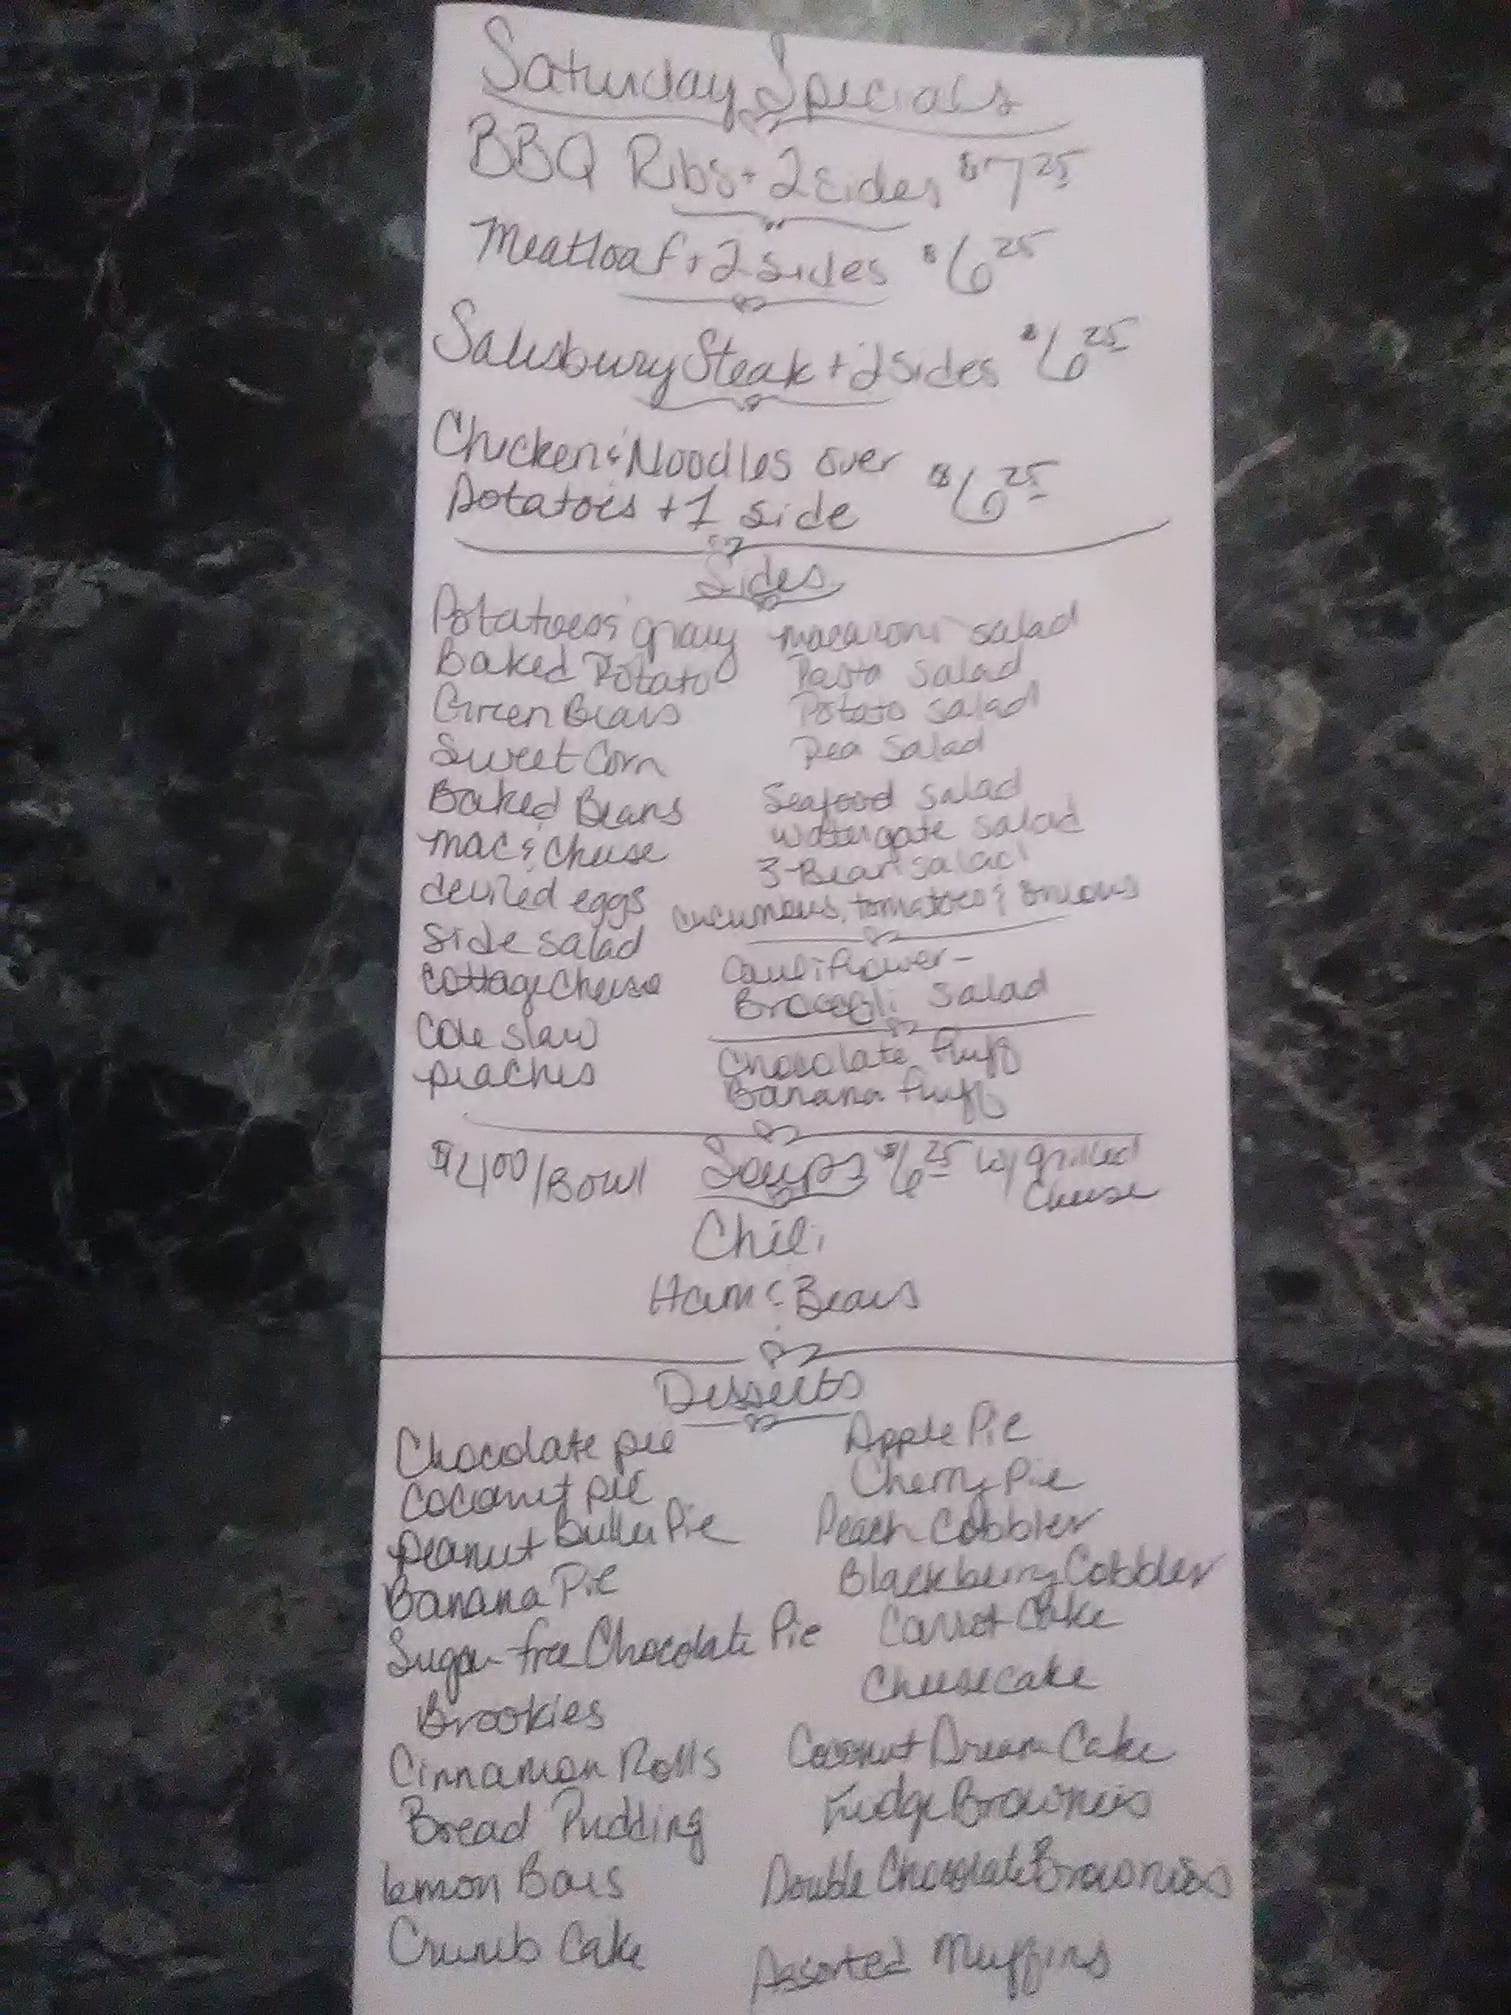 Saturday Specials
BBQ Ribs + 2 sides $7.25
Meatloaf + 2 sides $6.25
Salisbury Steak + 2 Sides $6.25
Chicken & Noodles over
Potatoes + 1 side $6.25
Sides
Potatoes & gravy
Baked Potato
Green Beans
Sweet Corn
Baked Beans
mac & cheese
deviled eggs
side salad
cottage cheese
Cole slaw
peaches
macaroni salad
Pasta Salad
Potato salad
Pea Salad
Seafood salad
watergate salad
3-Bean salad
cucumbers, tomatoes & onions
Cauliflower-
Broccoli salad
Chocolate fluff
Banana fluff
$4.00/Bowl Soups $6.25 w/ grilled
cheese
Chili
Ham & Beans
Desserts
Chocolate pie
Coconut pie
Peanut Butter Pie
Banana Pie
Sugar-free Chocolate Pie
Brookies
Cinnamon Rolls
Bread Pudding
lemon Bars
Crumb Cake
Apple Pie
Cherry Pie
Peach Cobbler
Blackberry Cobbler
Carrot Cake
Cheesecake
Coconut Dream Cake
Fudge Brownies
Double Chocolate Brownies
Assorted Muffins